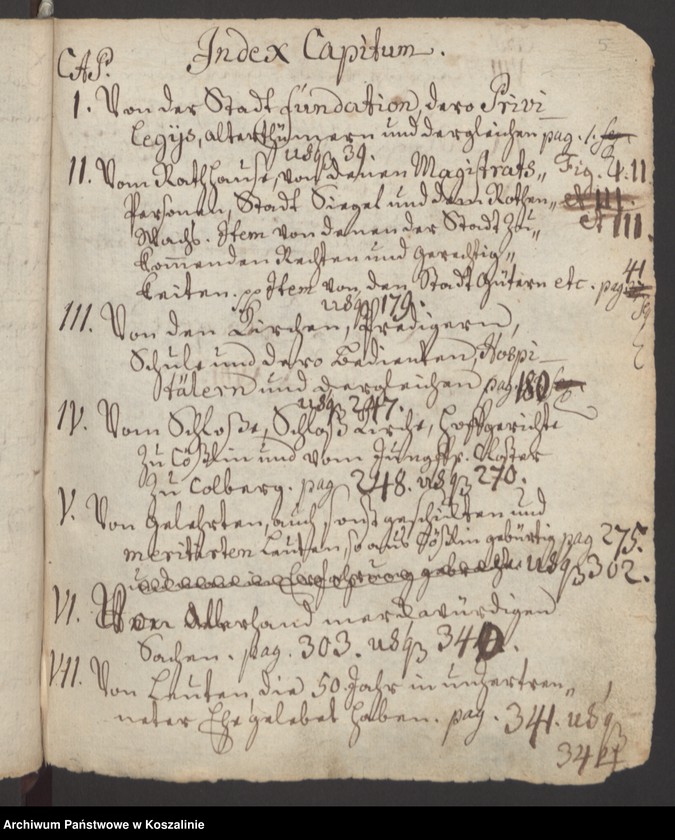 5
Index Capitum.
CAP.
I. Von der Stadt fundation, dero Privi_
legijs, alterthümern und dergleichen pag. 1.
usq 39.
II. Vom Rathhause, von denen Magistrats,, Fig. 4. 11
Personen, Stadt Siegel und dem Rothen,, et III.
Wachs. Item von denen der Stadt zu,, et III.
kommenden Rechten und gerechtig,,
keiten. pp Item von den Stadt Gütern etc. pag. 41
usq 179. sq
III. Von den Kirchen, Predigern,
Schule und dero Bedienten, Hospi_
tälern und dergleichen pag 180
usq 247.
IV. Vom Schloße, Schloß Kirche, Hoffgerichte
zu Cößlin und vom Jungffr. Kloster
zu Colberg. pag 248. usq 270.
V. Von Gelehrten, auch sonst geschickten und
meritirten Leuten, so aus Cößlin gebürtig pag 275.
usq 302.
VI. Von Allerhand merckwürdigen
Sachen. pag. 303. usq 340.
VII. Von Leuten, die 50 Jahr in unzertren,,
neter Ehe gelebet haben. pag. 341. usq
Archiwum Państwowe w Koszalinie